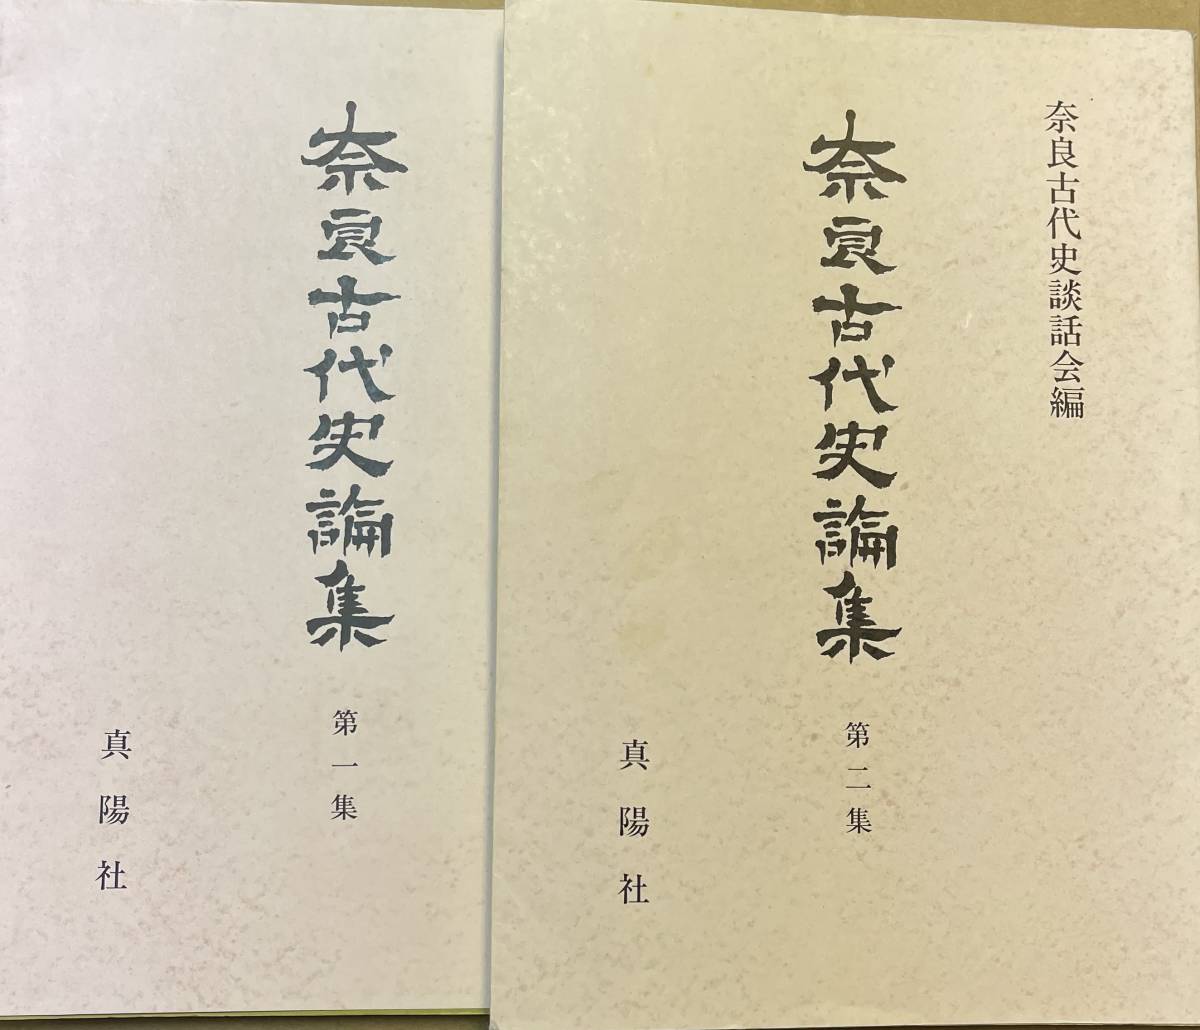 奈良古代史論集
第一集
真陽社
奈良古代史談話会編
奈良古代史論集
第二集
真陽社